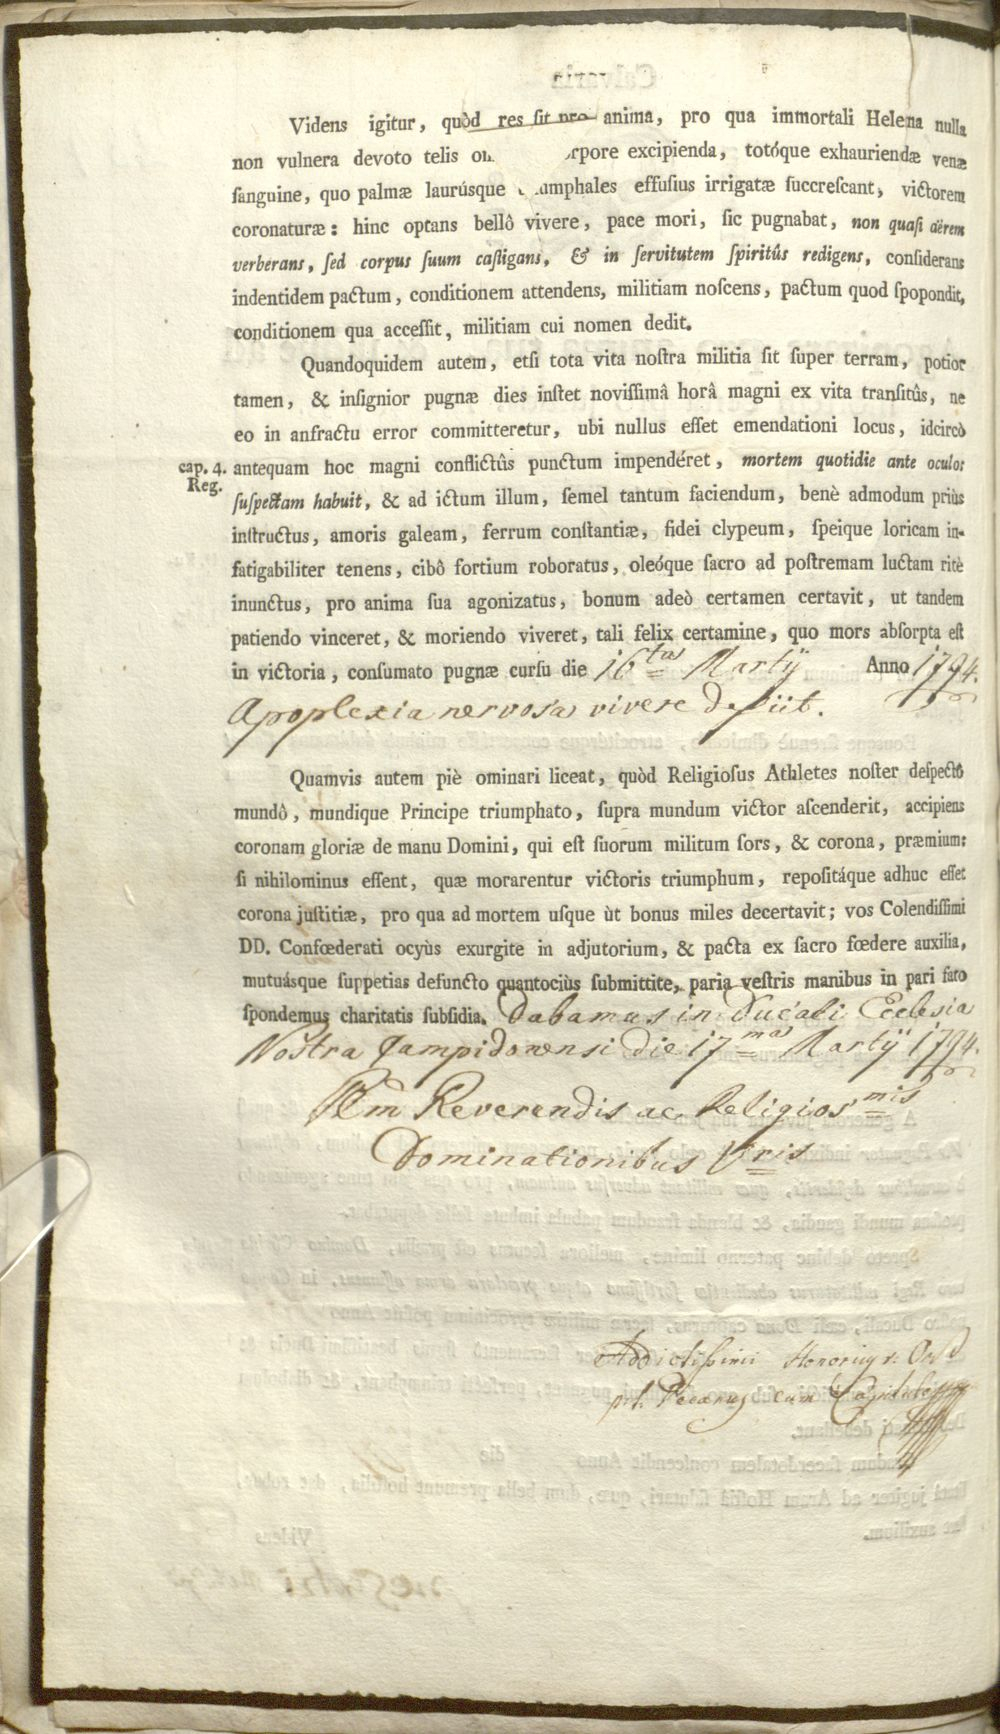 Videns igitur, quòd res ſit pro anima, pro qua immortali Helena nulla
non vulnera devoto telis rpore excipienda, totóque exhauriendæ venæ
ſanguine, quo palmæ laurúsque umphales effuſius irrigatæ ſuccreſcant, victorem
coronaturæ: hinc optans bellô vivere, pace mori, ſic pugnabat, non quaſi aërem
verberans, ſed corpus ſuum caſtigans, & in ſervitutem ſpiritûs redigens, conſiderans
indentidem pactum, conditionem attendens, militiam noſcens, pactum quod ſpopondit,
conditionem qua acceſſit, militiam cui nomen dedit.
Quandoquidem autem, etſi tota vita noſtra militia ſit ſuper terram, potior
tamen, & inſignior pugnæ dies inſtet noviſſimâ horâ magni ex vita tranſitûs, ne
eo in anfractu error committeretur, ubi nullus eſſet emendationi locus, idcircò
cap. 4. antequam hoc magni conflictûs punctum impendéret, mortem quotidie ante oculos
Reg. ſuſpectam habuit, & ad ictum illum, ſemel tantum faciendum, benè admodum priùs
inſtructus, amoris galeam, ferrum conſtantiæ, fidei clypeum, ſpeique loricam in-
fatigabiliter tenens, cibô fortium roboratus, oleóque ſacro ad poſtremam luctam ritè
inunctus, pro anima ſua agonizatus, bonum adeò certamen certavit, ut tandem
patiendo vinceret, & moriendo viveret, tali felix certamine, quo mors abſorpta eſt
in victoria, conſumato pugnæ curſu die 16ta Martÿ Anno 1794.
Apoplexia nervosa vivere desiit.
Quamvis autem piè ominari liceat, quòd Religioſus Athletes noſter deſpectô
mundô, mundique Principe triumphato, ſupra mundum victor aſcenderit, accipiens
coronam gloriæ de manu Domini, qui eſt ſuorum militum ſors, & corona, præmium:
ſi nihilominus eſſent, quæ morarentur victoris triumphum, repoſitáque adhuc eſſet
corona juſtitiæ, pro qua ad mortem uſque ùt bonus miles decertavit; vos Colendiſſimi
DD. Confœderati ocyùs exurgite in adjutorium, & pacta ex ſacro fœdere auxilia,
mutuásque ſuppetias defuncto quantociùs ſubmittite, paria veſtris manibus in pari fato
ſpondemus charitatis ſubſidia. Dabamus in Ducali Ecclesia
Nostra Campidonensi die 17ma Martÿ 1794.
Reverendis ac Religiosmis
Dominationibus Vris
Addictiſsimi Honorius
cum Capitulo
Videns